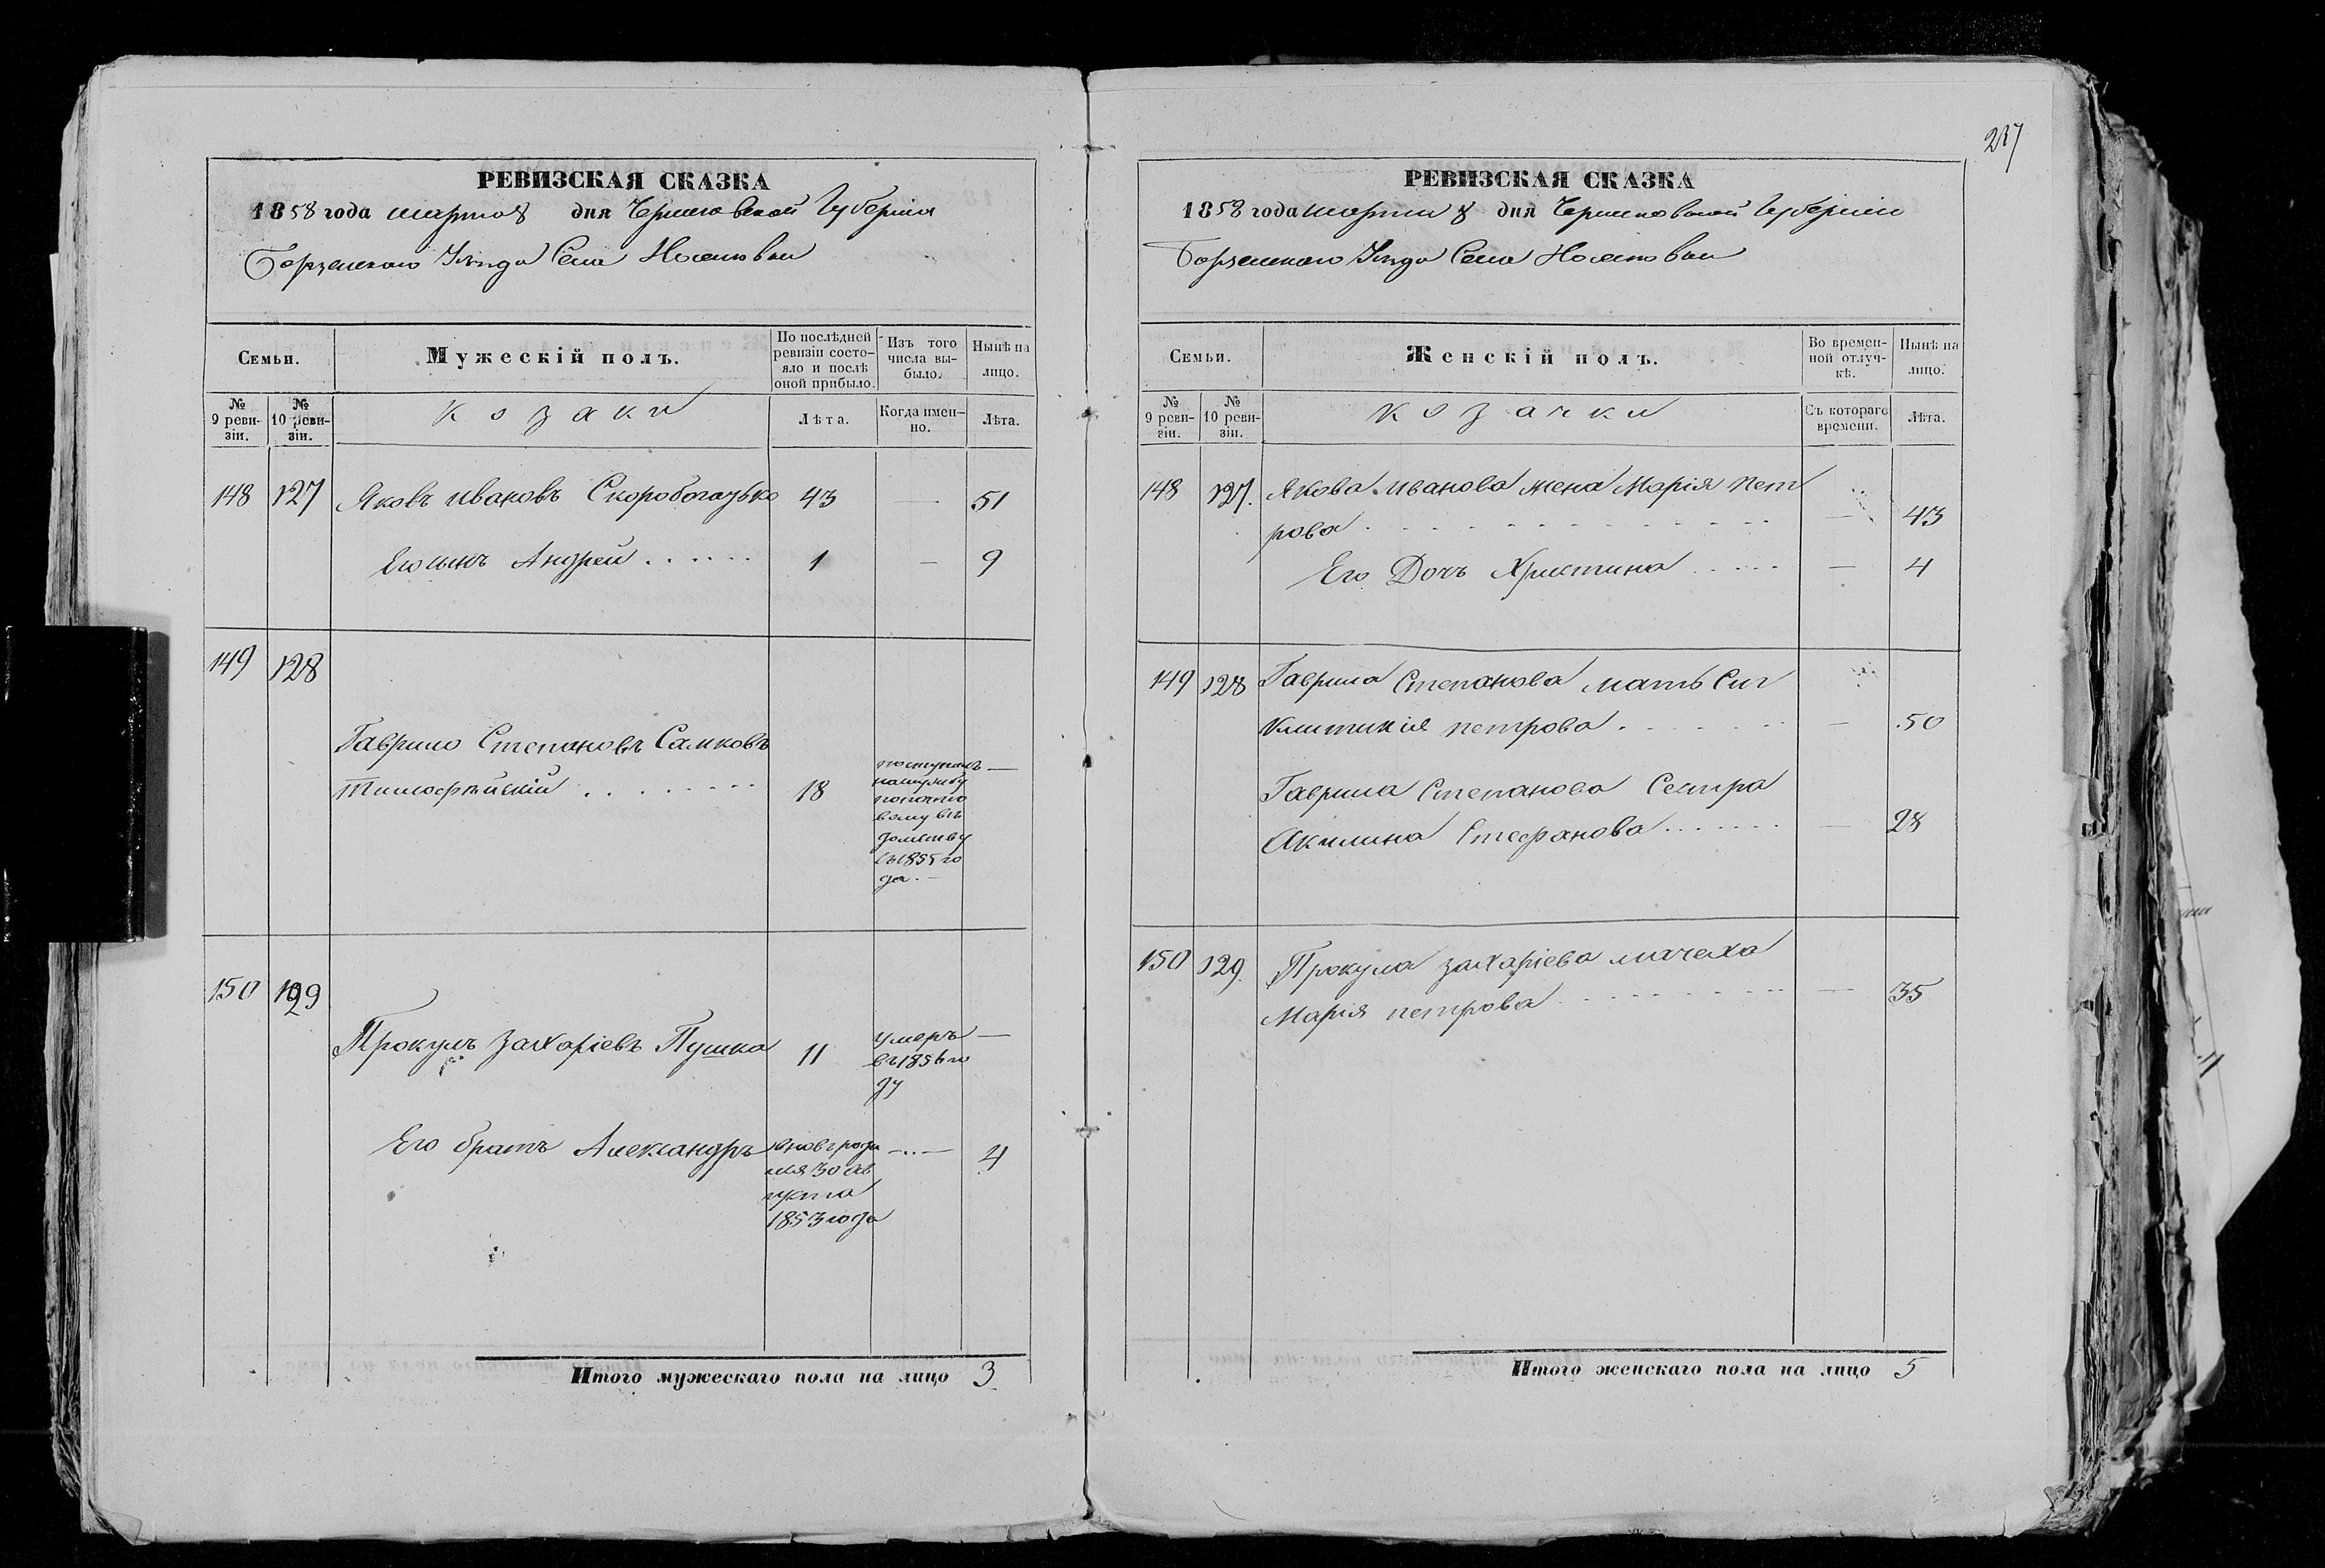 РЕВИЗСКАЯ СКАЗКА
1858 года марта 8 дня Черниговской Губернiи
Борзенского Уѣзда Села
Семьи.
Мужескій полъ.
По послѣдней ревизіи состояло и послѣ оной прибыло.
Изъ того числа выбыло.
Нынѣ на лицо.
№ 9 ревизіи.
№ 10 ревизіи.
Козаки
Лѣта.
Когда именно.
Лѣта.
148 127 Яковъ Ивановъ Скоробогатько 43 — 51
Его сынъ Андрей . . . . . . 1 — 9
149 128
Гаврило Степановъ
18
поступилъ —
на службу
домству
съ 1855 го
да. —
150 129
Прокулъ Захаріевъ Пушка 11 умеръ —
въ 1856 го
ду
Его братъ Александръ вновь роди — . . — 4
лся 30 ав
густа
1853 года
Итого мужескаго пола на лицо 3
237
РЕВИЗСКАЯ СКАЗКА
1858 года марта 8 дня Черниговской Губерніи
Борзенского Уѣзда Села
Семьи.
Женскій полъ.
Во временной отлучкѣ.
Нынѣ на лицо.
№ 9 ревизіи.
№ 10 ревизіи.
Козачки
Съ котораго времени.
Лѣта.
148 127. Якова Иванова жена Марія Пет
рова . . . . . . . . . . . . — 43
Его Дочь Христина . . . . . — 4
149 128 Гаврила Степанова мать Син
клитикія петрова . . . . . . — 50
Гаврила Степанова Сестра
Акилина Стефанова . . . . . . — 28
150 129. Прокула Захаріева мачеха
Марія петрова . . . . . . . . — 35
Итого женскаго пола на лицо 5